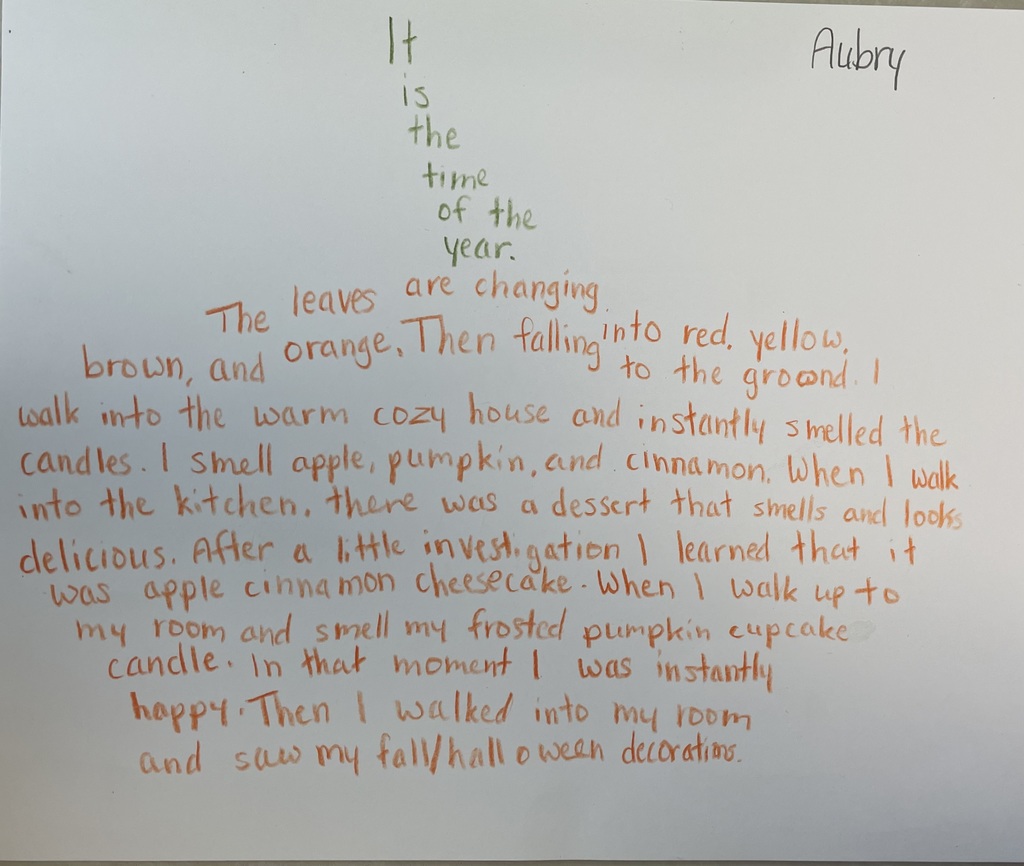 It
Aubry
is
the
time
of the
year.
The leaves are changing
into red, yellow,
brown, and orange. Then falling
to the ground. I
walk into the warm cozy house and instantly smelled the
candles. I smell apple, pumpkin, and cinnamon. When I walk
into the kitchen, there was a dessert that smells and looks
delicious. After a little investigation I learned that it
was apple cinnamon cheesecake. When I walk up to
my room and smell my frosted pumpkin cupcake
candle. In that moment I was instantly
happy. Then I walked into my room
and saw my fall/halloween decorations.